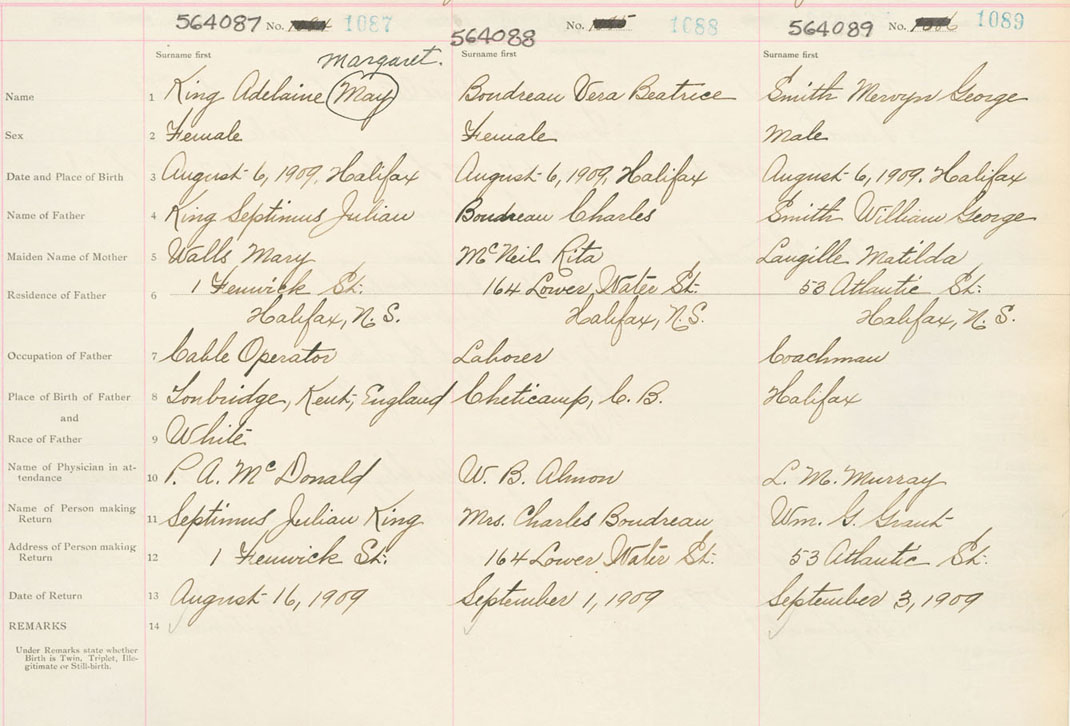 564087 No. 1087 564088 No. 1088 564089 No. 1089
Surname first Surname first Surname first
Margaret.
Name 1 King Adelaine May Boudreau Vera Beatrice Smith Mervyn George
Sex 2 Female Female Male
Date and Place of Birth 3 August 6, 1909, Halifax August 6, 1909, Halifax August 6, 1909, Halifax
Name of Father 4 King Septimus Julian Boudreau Charles Smith William George
Maiden Name of Mother 5 Walls Mary McNeil Rita Langille Matilda
Residence of Father 6 1 Fenwick St. 164 Lower Water St. 53 Atlantic St.
Halifax, N.S. Halifax, N.S. Halifax, N.S.
Occupation of Father 7 Cable Operator Laborer Coachman
Place of Birth of Father 8 Tonbridge, Kent, England Cheticamp, C.B. Halifax
and
Race of Father 9 White
Name of Physician in at-
tendance 10 P. A. McDonald W. B. Almon L. M. Murray
Name of Person making
Return 11 Septimus Julian King Mrs. Charles Boudreau Wm. G. Grant
Address of Person making
Return 12 1 Fenwick St. 164 Lower Water St. 53 Atlantic St.
Date of Return 13 August 16, 1909 September 1, 1909 September 3, 1909
REMARKS 14
Under Remarks state whether
Birth is Twin, Triplet, Ille-
gitimate or Still-birth.